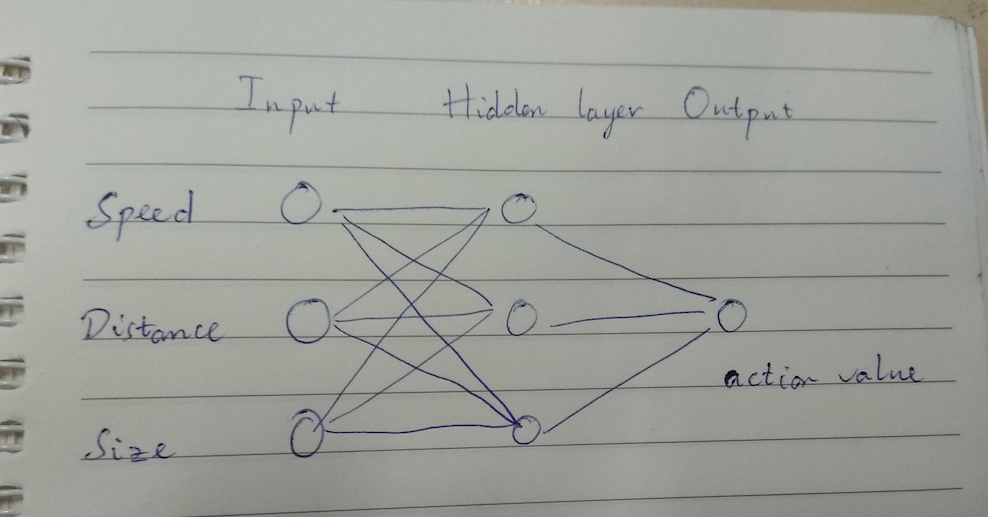 Input Hidden layer Output
Speed
Distance
action value
Size